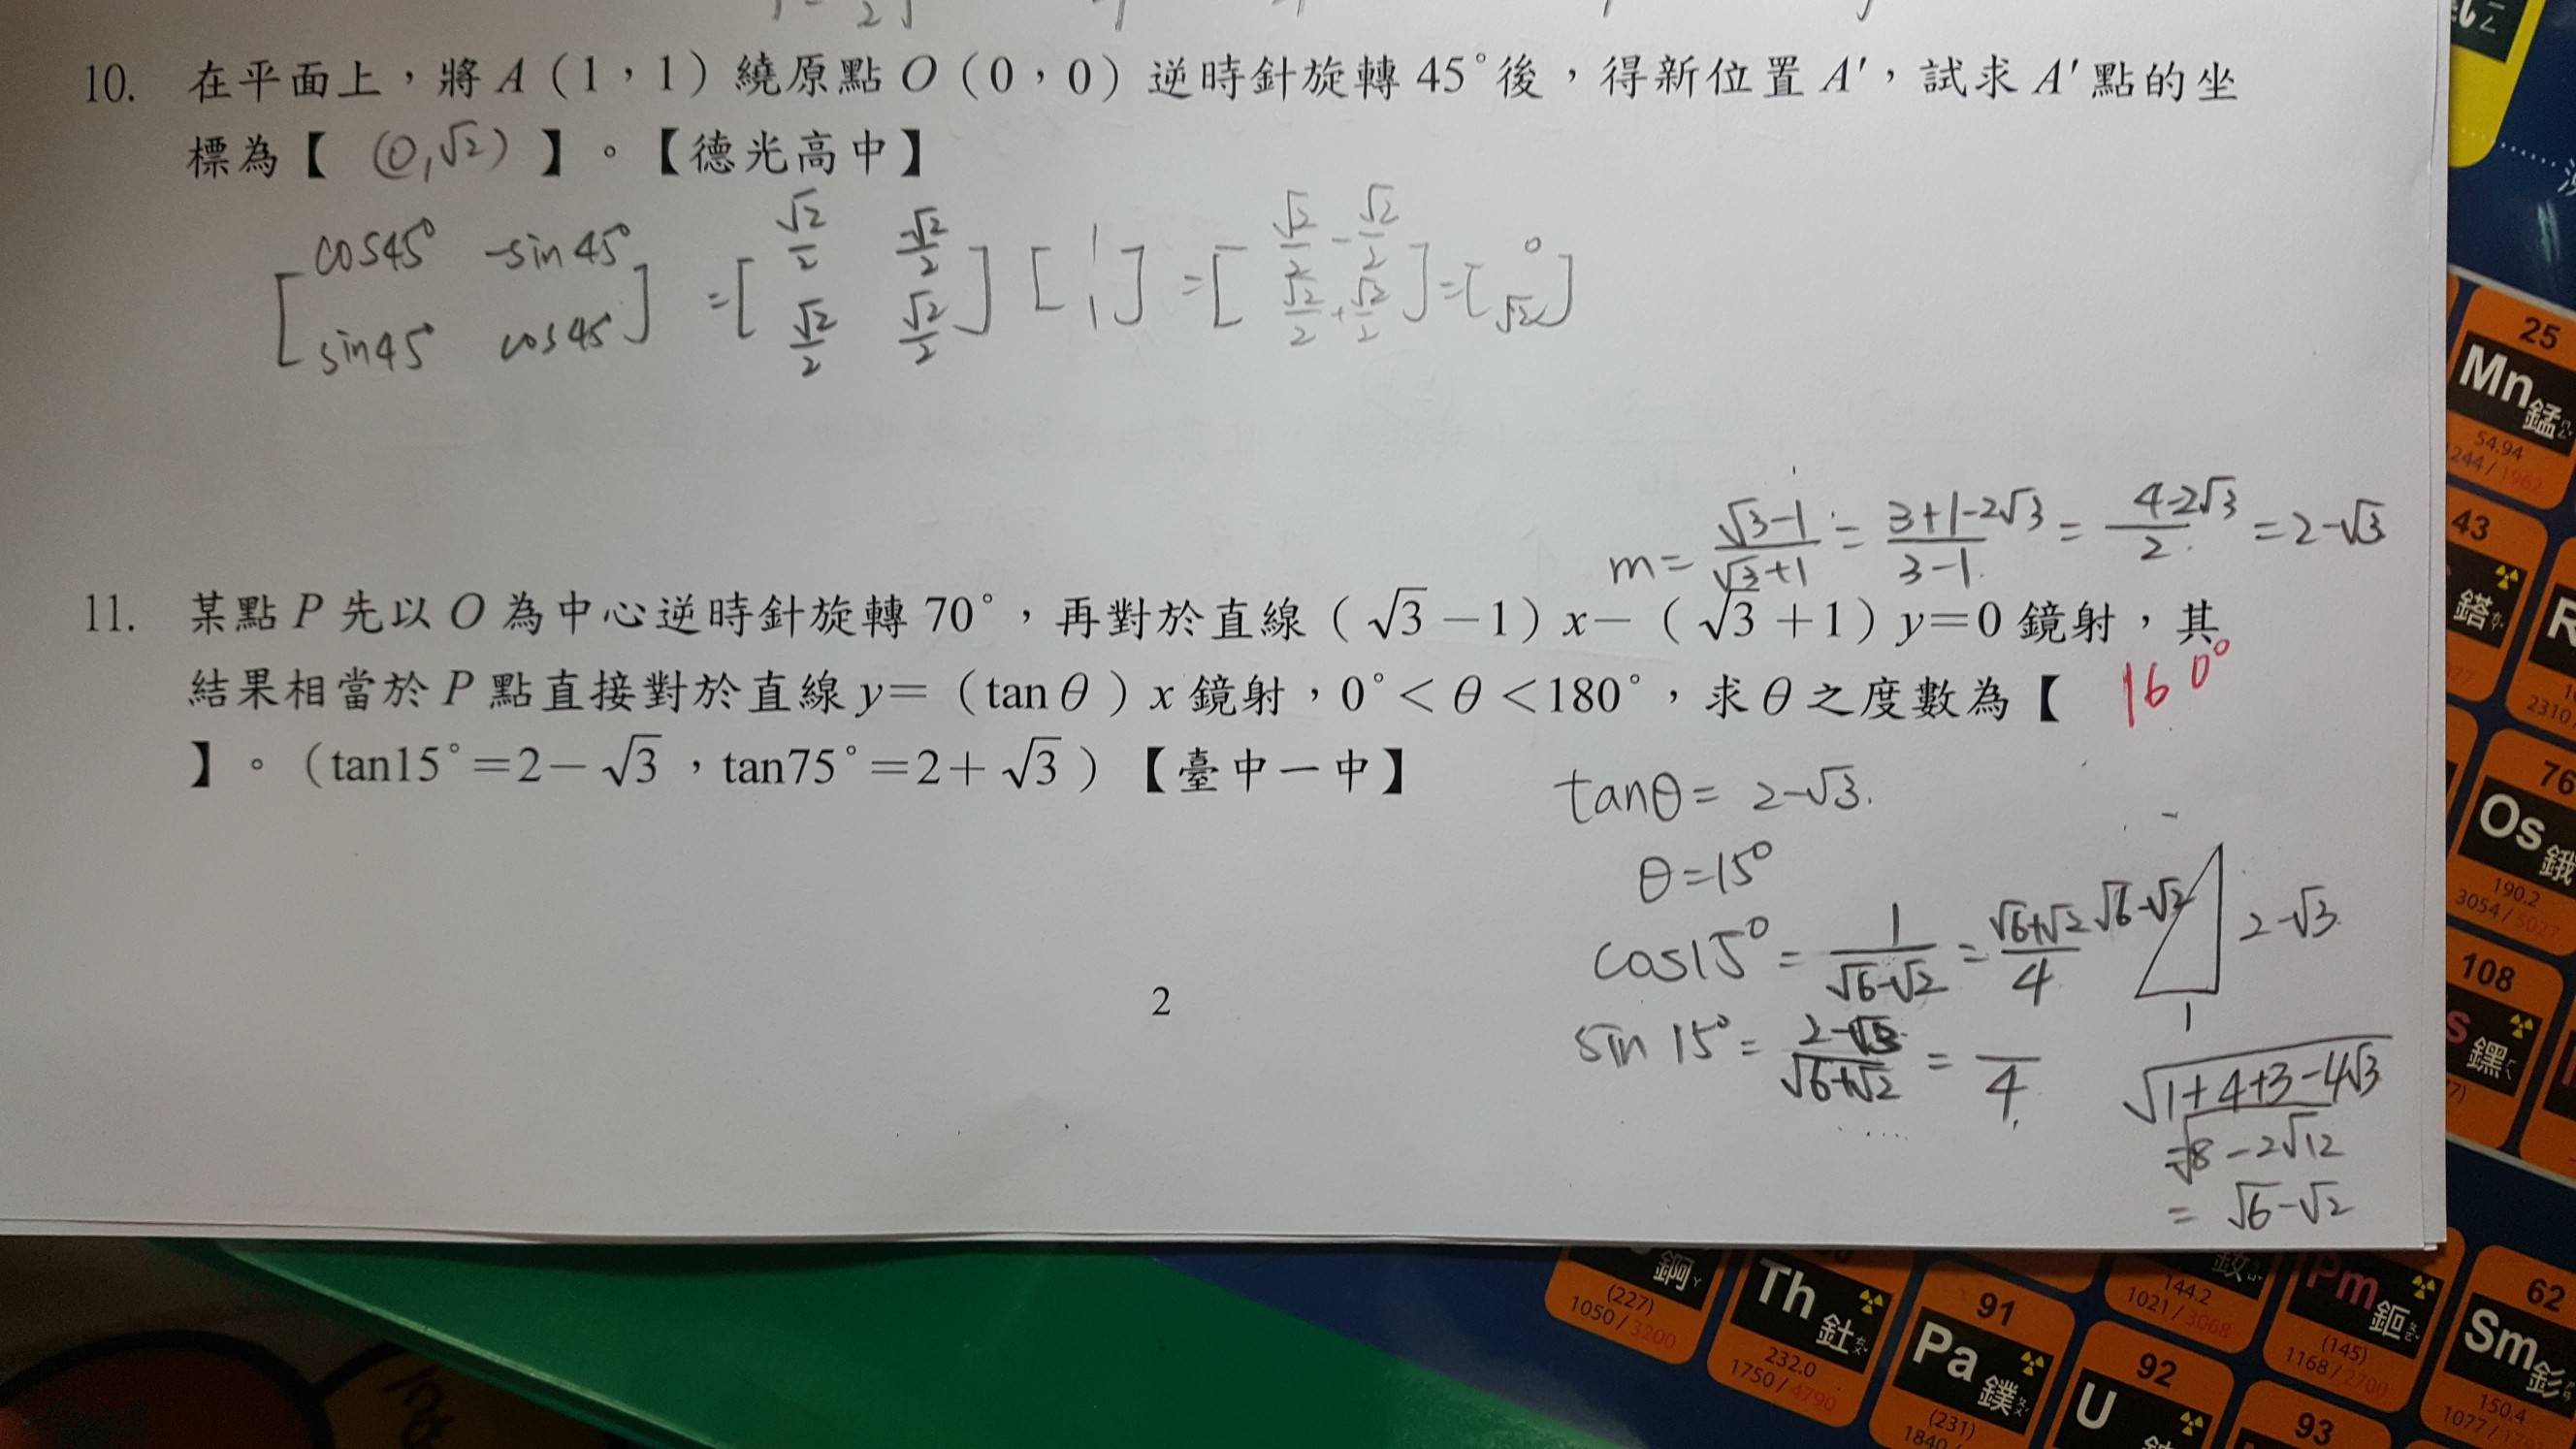 10. 在平面上，將 A（1，1）繞原點 O（0，0）逆時針旋轉 45°後，得新位置 A′，試求 A′點的坐
標為【 (0,√2) 】。【德光高中】
[cos45° -sin45° sin45° cos45°] = [√2/2 -√2/2 √2/2 √2/2] [1 1] = [√2/2 - √2/2 √2/2 + √2/2] = [0 √2]
m = (√3-1)/(√3+1) = (3+1-2√3)/(3-1) = (4-2√3)/2 = 2-√3
11. 某點 P 先以 O 為中心逆時針旋轉 70°，再對於直線（√3－1）x－（√3＋1）y＝0 鏡射，其
結果相當於 P 點直接對於直線 y＝（tanθ）x 鏡射，0°＜θ＜180°，求θ之度數為【 160°
】。（tan15°＝2－√3，tan75°＝2＋√3）【臺中一中】
tanθ = 2-√3.
θ=15°
cos15° = 1/(√6-√2) = (√6+√2)/4
√6-√2
2-√3
1
sin 15° = (2-√3)/(√6+√2) = /4
√(1+4+3-4√3)
=√(8-2√12)
= √6-√2
2
25
Mn 錳
54.94
1244 / 1962
43
鎝
76
Os 鋨
190.2
3054 / 5027
108
鏍
錒
(227)
1050 / 3200
Th 釷
232.0
1750 / 4790
91
Pa 鏷
(231)
92
U
144.2
1021 / 3068
Pm 鉕
(145)
1168 / 2700
93
62
Sm 釤
150.4